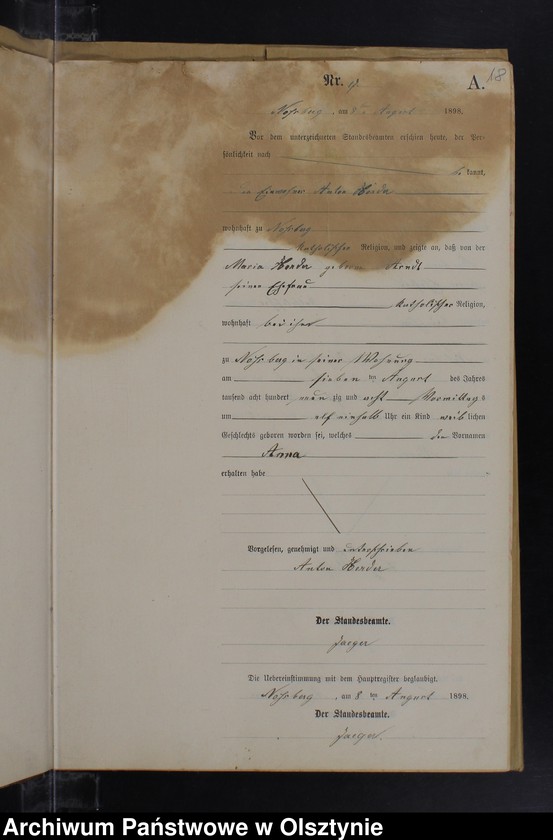 18
Nr. A.
am August 1898.
Vor dem unterzeichneten Standesbeamten erschien heute, der Per-
sönlichkeit nach
kannt,
Anton
wohnhaft zu
katholischer Religion, und zeigte an, daß von der
Maria Herder geborene Arndt
seiner Ehefrau
katholischer Religion,
wohnhaft bei ihm
zu in seiner Wohnung
am sieben ten August des Jahres
tausend acht hundert neun zig und acht Vormittags
um elf einhalb Uhr ein Kind weiblichen
Geschlechts geboren worden sei, welches den Vornamen
Anna
erhalten habe
Vorgelesen, genehmigt und unterschrieben
Anton Herder
Der Standesbeamte.
Jaeger
Die Uebereinstimmung mit dem Hauptregister beglaubigt.
am 8 ten August 1898.
Der Standesbeamte.
Jaeger.
Archiwum Państwowe w Olsztynie